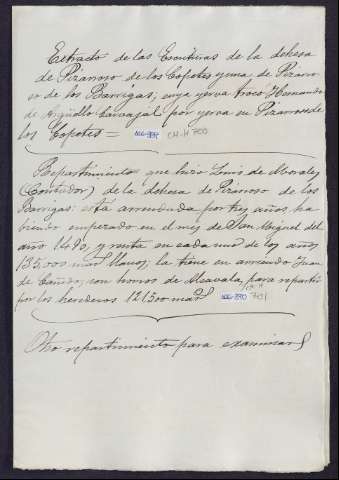 Extracto de las Escrituras de la dehesa
de Pizarroso de los Copetes y una de Pizarro
so de los Barrigas, cuya yerva trocó Hernando
de Argüello Carvajal por yerva en Pizarroso de
los Copetes =
CH-H 700
Repartimiento que hizo Louis de Morales
(Contador) de la dehesa de Pizarroso de los
Barrigas: está arrendada por tres años, ha
biendo empezado en el mes de San Miguel del
año 1490, y renta en cada uno de los años
135.000 mar
de son homos de Alcavala, para repartir
por los herederos 121500 mar
Otro repartimiento para examinar